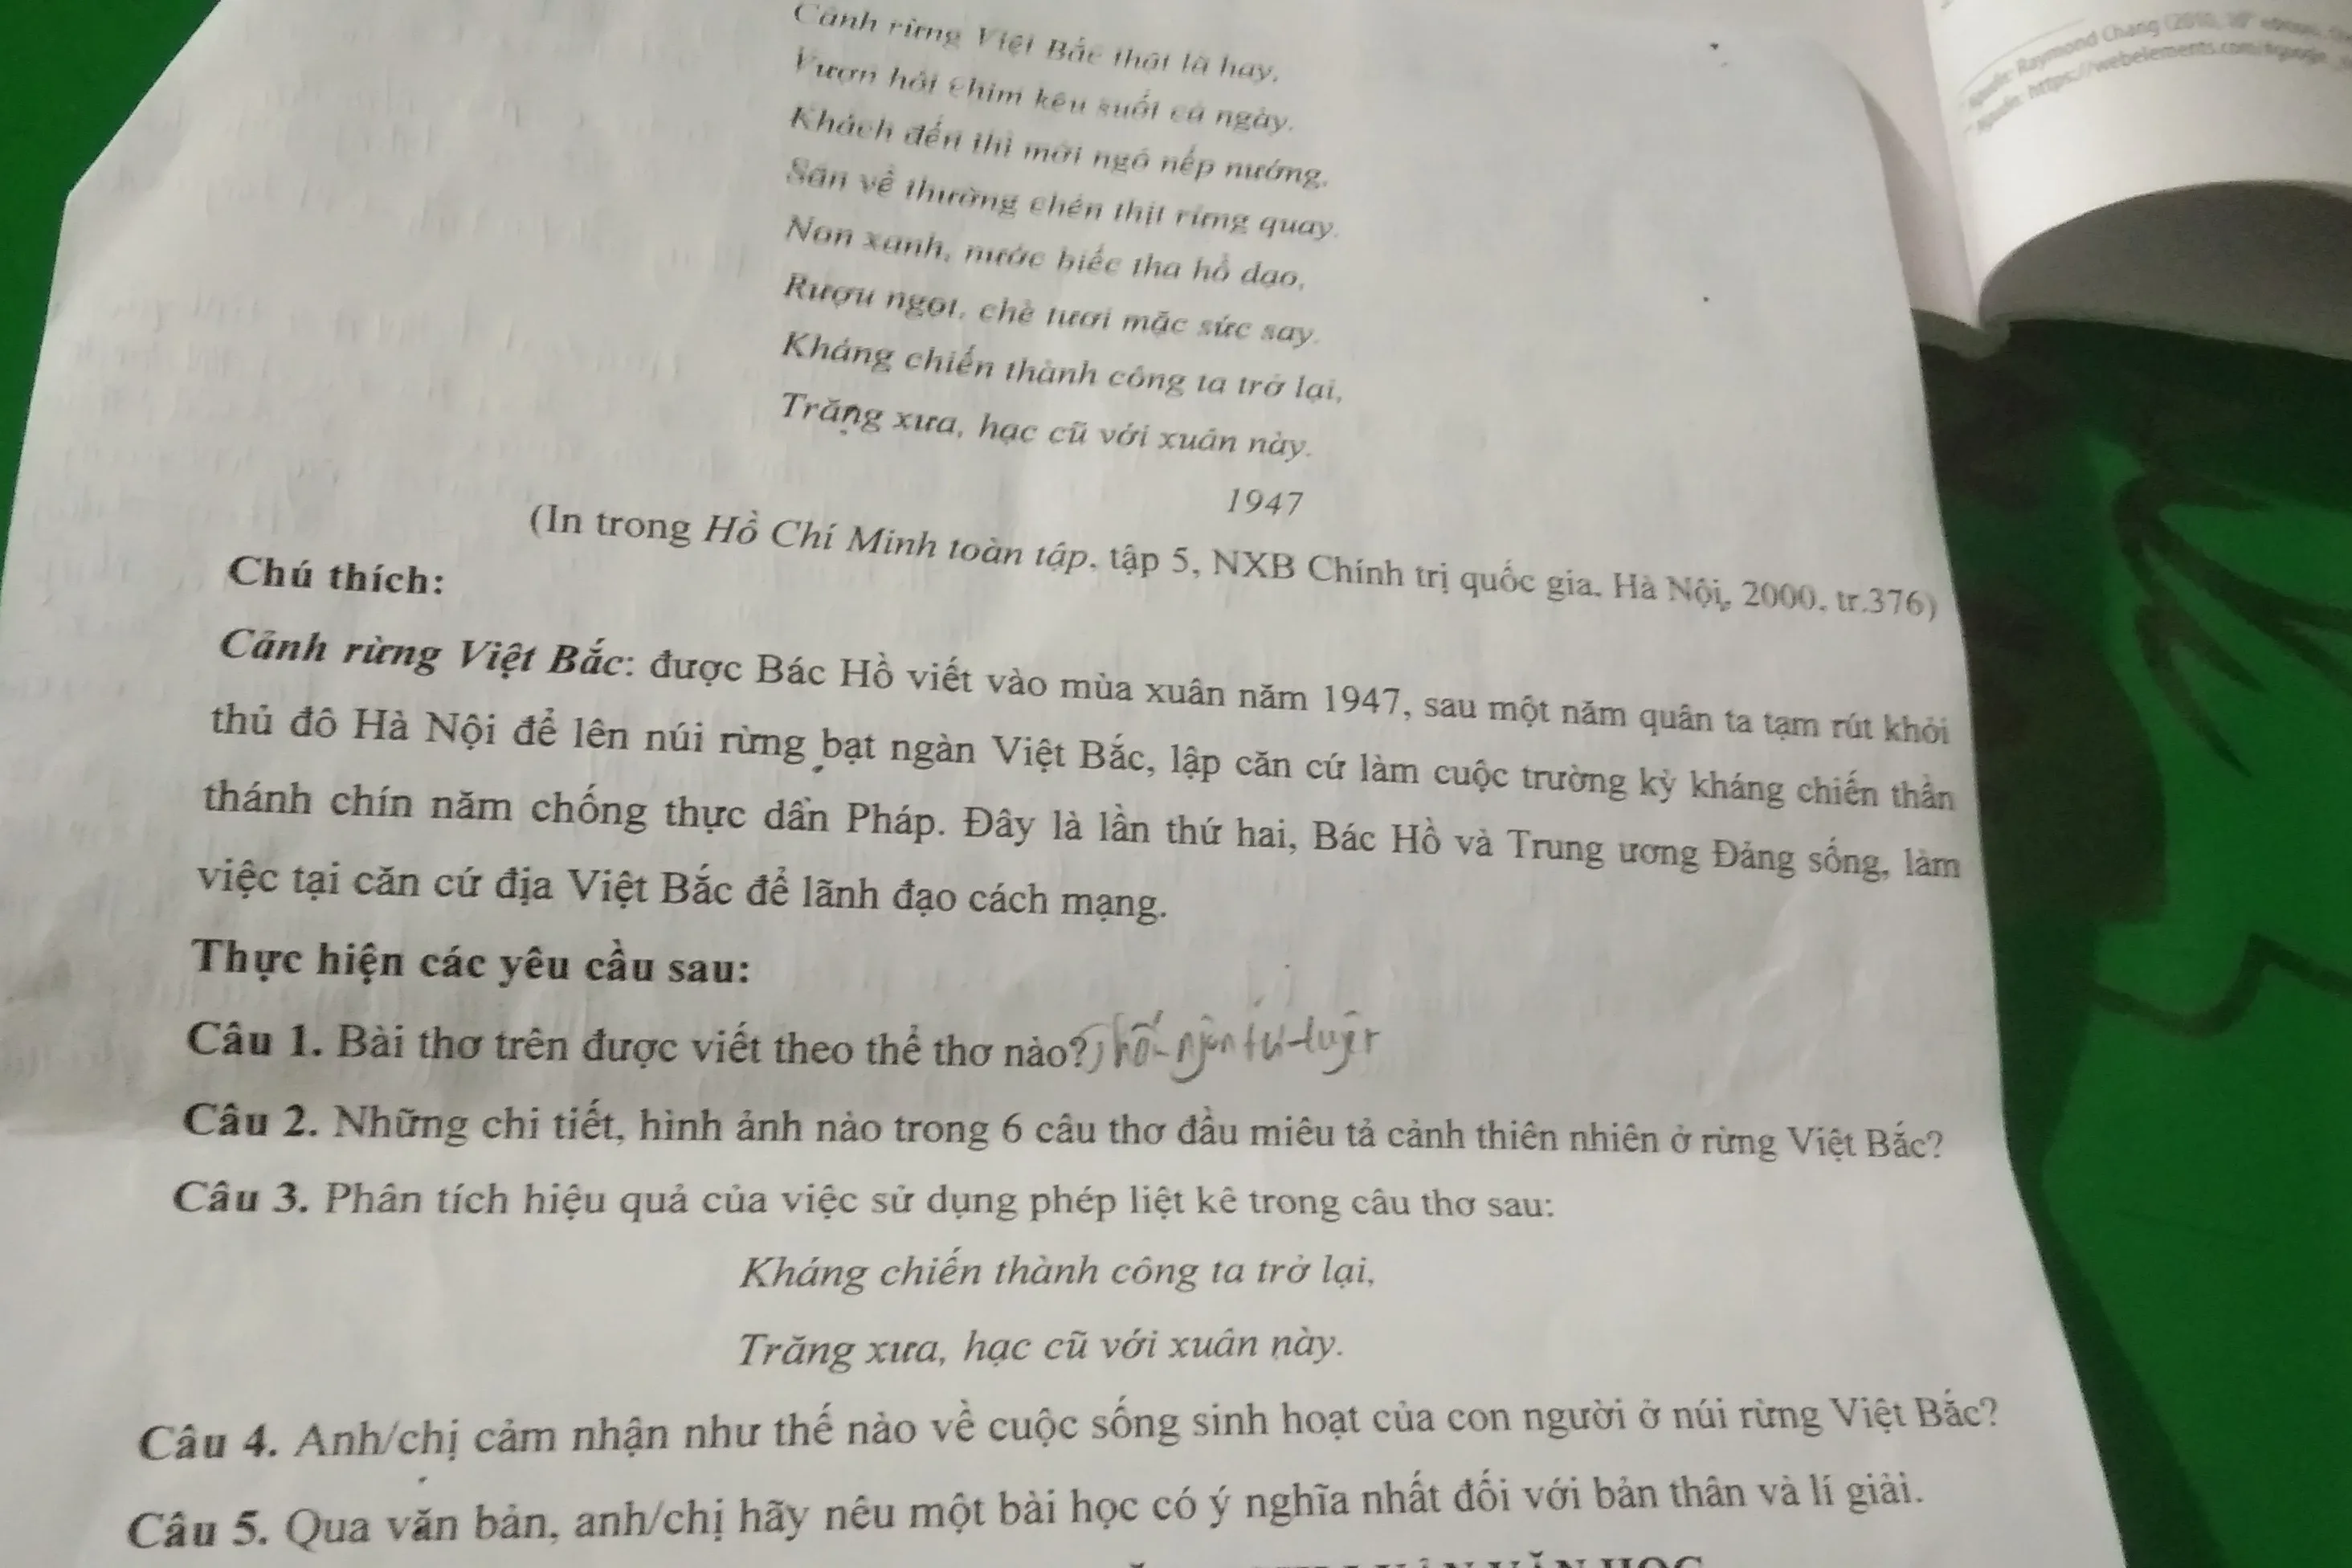 Cảnh rừng Việt Bắc thật là hay,
Vượn hót chim kêu suốt cả ngày.
Khách đến thì mời ngô nếp nướng,
Săn về thường chén thịt rừng quay.
Non xanh, nước biếc tha hồ dạo,
Rượu ngọt, chè tươi mặc sức say.
Kháng chiến thành công ta trở lại,
Trăng xưa, hạc cũ với xuân này.
1947
(In trong Hồ Chí Minh toàn tập, tập 5, NXB Chính trị quốc gia, Hà Nội, 2000, tr.376)
Chú thích:
Cảnh rừng Việt Bắc: được Bác Hồ viết vào mùa xuân năm 1947, sau một năm quân ta tạm rút khỏi
thủ đô Hà Nội để lên núi rừng bạt ngàn Việt Bắc, lập căn cứ làm cuộc trường kỳ kháng chiến thần
thánh chín năm chống thực dân Pháp. Đây là lần thứ hai, Bác Hồ và Trung ương Đảng sống, làm
việc tại căn cứ địa Việt Bắc để lãnh đạo cách mạng.
Thực hiện các yêu cầu sau:
Câu 1. Bài thơ trên được viết theo thể thơ nào? ngôn tứ tuyệt
Câu 2. Những chi tiết, hình ảnh nào trong 6 câu thơ đầu miêu tả cảnh thiên nhiên ở rừng Việt Bắc?
Câu 3. Phân tích hiệu quả của việc sử dụng phép liệt kê trong câu thơ sau:
Kháng chiến thành công ta trở lại,
Trăng xưa, hạc cũ với xuân này.
Câu 4. Anh/chị cảm nhận như thế nào về cuộc sống sinh hoạt của con người ở núi rừng Việt Bắc?
Câu 5. Qua văn bản, anh/chị hãy nêu một bài học có ý nghĩa nhất đối với bản thân và lí giải.
Nguồn: Raymond Chang (2010, 10
Nguồn: https://webelements.com/